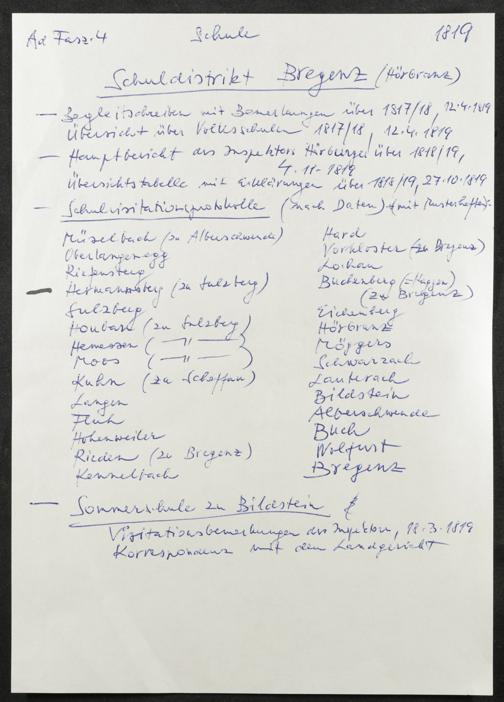 Ad Fasz. 4 Schule 1819
Schuldistrikt Bregenz (Hörbranz)
— Begleitschreiben mit Bemerkungen über 1817/18, 12.4.1819
Übersicht über Volksschulen 1817/18, 12.4.1819
— Hauptbericht des Inspektors Hörburger über 1818/19,
4.11.1819
Übersichtstabelle mit Erklärungen über 1818/19, 27.10.1819
— Schulvisitationsprotokolle (nach Daten) (mit
Müselbach (zu Alberschwende)
Oberlangenegg
Riefensberg
Hermannsberg (zu Sulzberg)
Sulzberg
Honbarn (zu Sulzberg)
Hemessen ( —"— )
Moos ( —"— )
Kuhn (zu Scheffau)
Langen
Fluh
Hohenweiler
Rieden (zu Bregenz)
Kennelbach
Hard
Vorkloster (zu Bregenz)
Lochau
Buchenberg
(zu Bregenz)
Eichenberg
Hörbranz
Möggers
Schwarzach
Lauterach
Bildstein
Alberschwende
Buch
Wolfurt
Bregenz
— Sommerschule zu Bildstein
Visitationsbemerkungen des Inspektors, 18.3.1819
Korrespondenz mit dem Landgericht